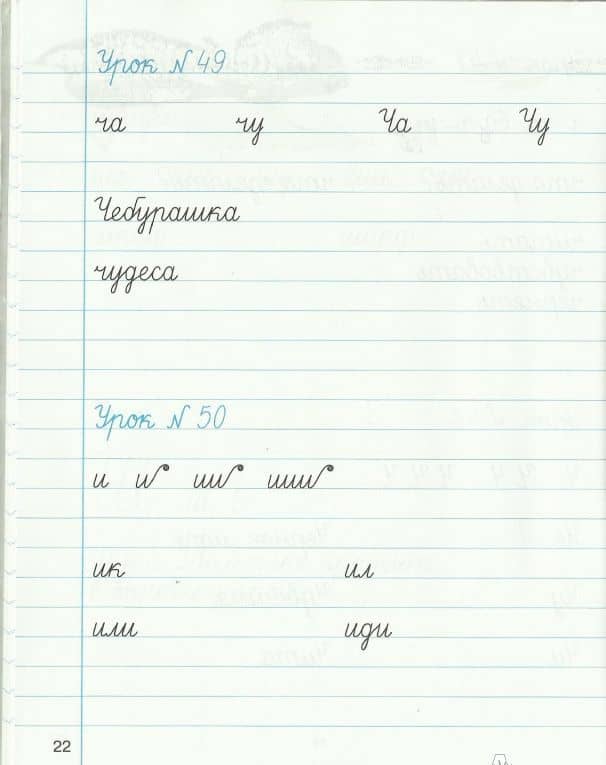 Урок N 49
ча чу Ча Чу
Чебурашка
чудеса
Урок N 50
и
ик ил
или иди
22